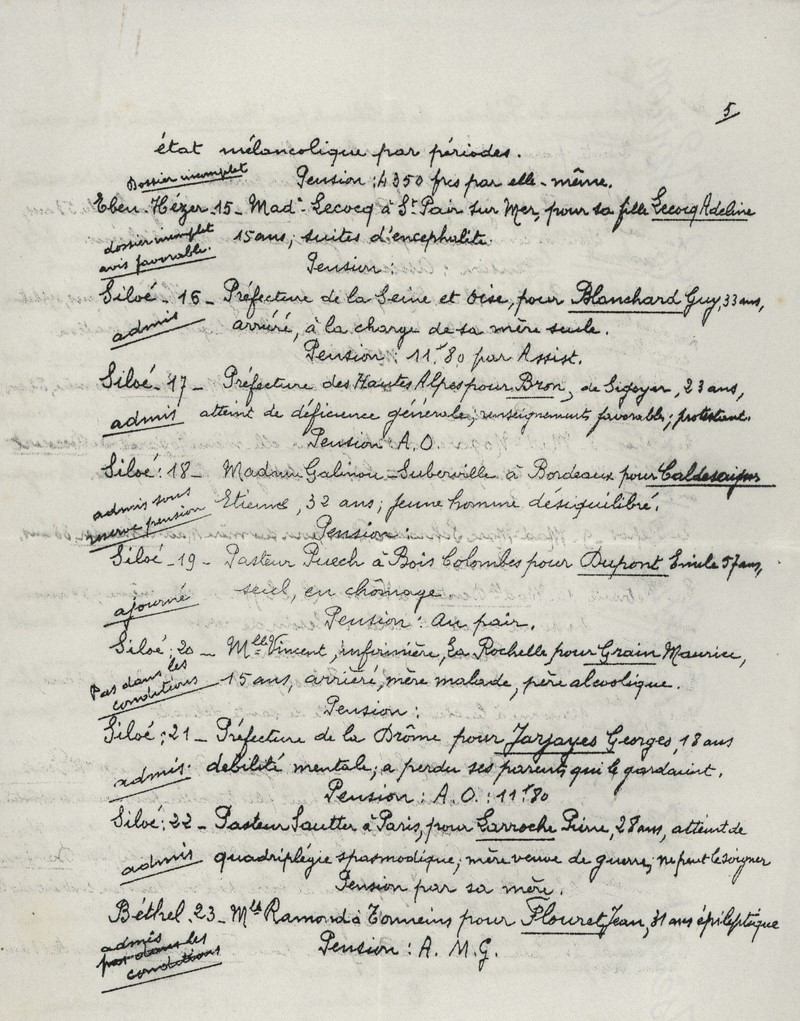 5
état mélancolique par périodes.
Dossier incomplet
Pension : 4350 frcs par elle-même.
Eben-Hézer 15 - Made Lecocq à St Pair sur Mer, pour sa fille Lecocq Adeline
dossier incomplet
15 ans, suites d'encéphalite.
avis favorable.
Pension :
Siloé - 16 - Préfecture de la Seine et Oise, pour Blanchard Guy, 33 ans,
admis
arriéré, à la charge de sa mère seule.
Pension : 11f80 par Assist.
Siloé - 17 - Préfecture des Hautes Alpes pour Bron, de Sigoyer, 23 ans,
admis
atteint de déficience générale; renseignements favorable; protestant.
Pension : A.O.
Siloé : 18 - Madame Galinou-Suberville à Bordeaux pour
admis sous
Etienne, 32 ans; jeune homme déséquilibré.
réserve pension
Pension :
Siloé - 19 - Pasteur Puech à Bois Colombes pour Dupont Emile 57 ans,
ajourné
seul, en chômage.
Pension : au pair.
Siloé : 20 - Mlle Vincent, infirmière, La Rochelle pour Grain Maurice,
Pas dans les
conditions
15 ans, arriéré, mère malade, père alcoolique.
Pension :
Siloé : 21 - Préfecture de la Drôme pour Jarjayes Georges, 18 ans
admis
debilité mentale; a perdu ses parents qui le gardaient.
Pension : A.O. : 11f80
Siloé : 22 - Pasteur Sautter à Paris, pour Larroche Pierre, 28 ans, atteint de
admis
quadriplégie spasmodique; mère veuve de guerre, ne peut le soigner
Pension par sa mère.
Béthel. 23 - Mlle Ramond à Tonneins pour Flouret Jean, 31 ans épileptique
admis
pas dans les
conditions
Pension : A.M.G.